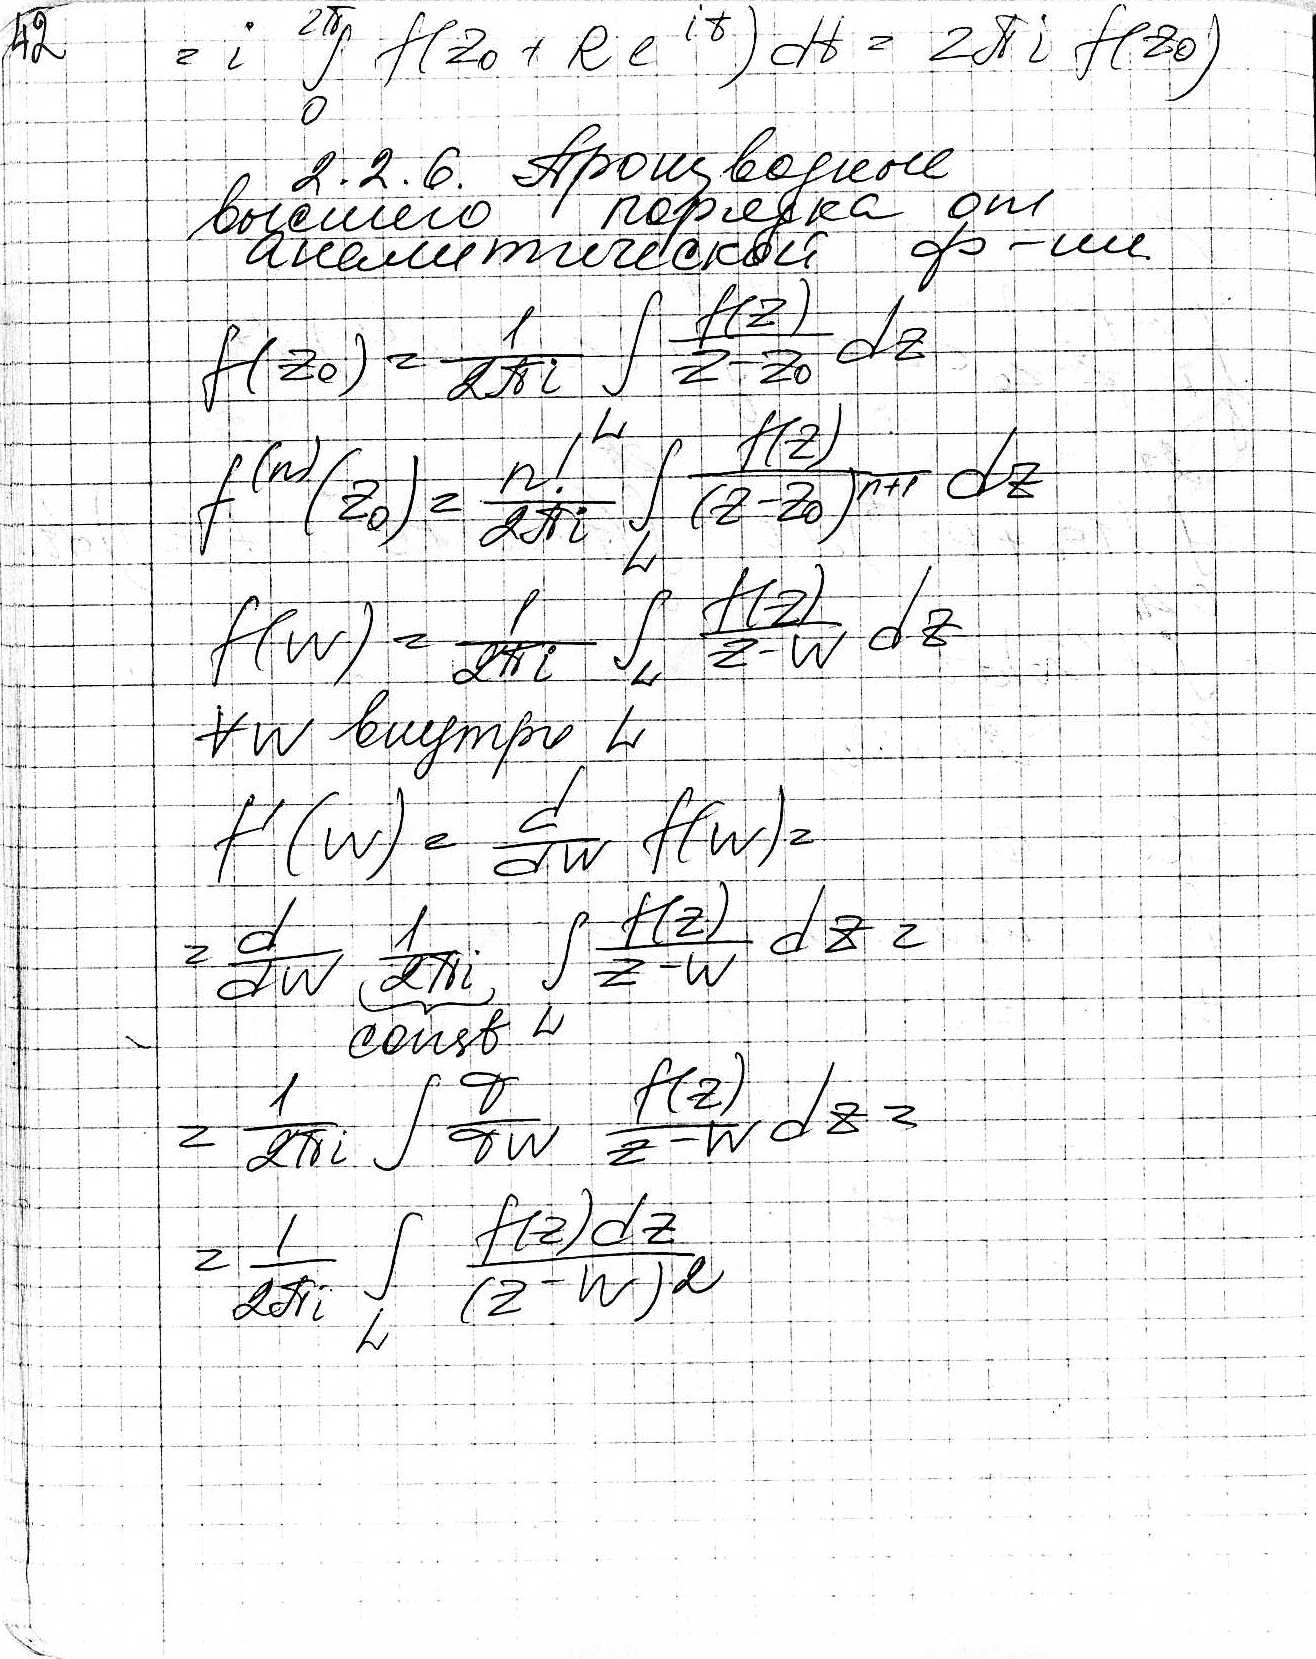 42
= i ∫₀^{2π} f(z₀ + R e^{it}) dt = 2πi f(z₀)
2.2.6. Производные
высшего порядка от
аналитической ф-ии
f(z₀) = \frac{1}{2πi} ∫_L \frac{f(z)}{z-z₀} dz
f^{(n)}(z₀) = \frac{n!}{2πi} ∫_L \frac{f(z)}{(z-z₀)^{n+1}} dz
f(w) = \frac{1}{2πi} ∫_L \frac{f(z)}{z-w} dz
∀w внутри L
f'(w) = \frac{d}{dw} f(w) =
= \frac{d}{dw} \underbrace{\frac{1}{2πi}}_{const} ∫_L \frac{f(z)}{z-w} dz =
= \frac{1}{2πi} ∫ \frac{∂}{∂w} \frac{f(z)}{z-w} dz =
= \frac{1}{2πi} ∫_L \frac{f(z)dz}{(z-w)^2}